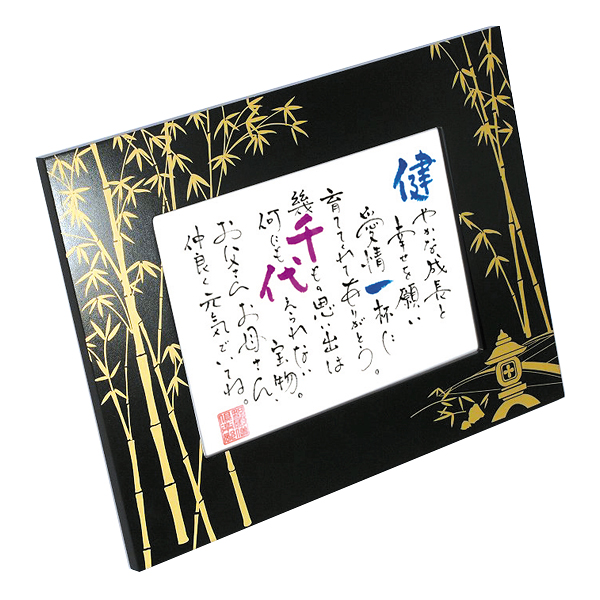 健やかな成長と
幸せを願い
愛情一杯に
育ててくれてありがとう。
幾千代もの思い出は
何にもかえられない宝物。
お父さんお母さん、
仲良く元気でいてね。